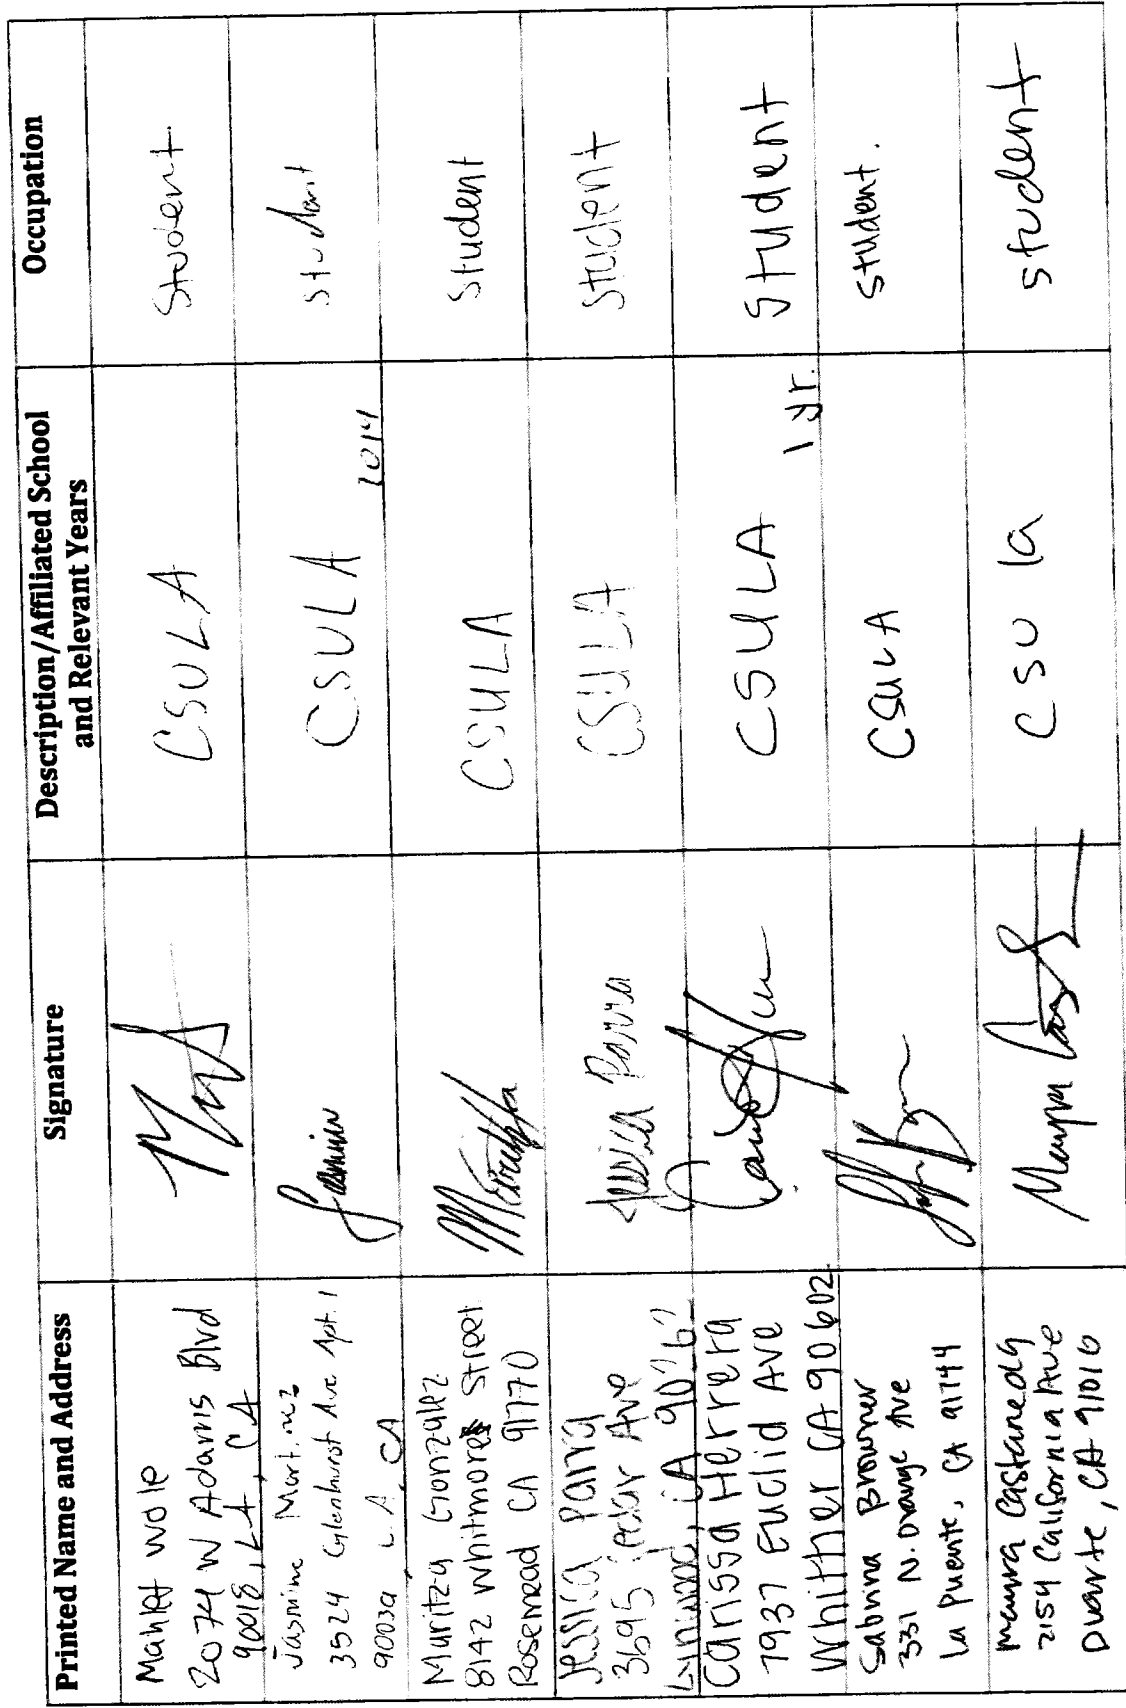 Printed Name and Address
Signature
Description/Affiliated School
and Relevant Years
Occupation
Mahlet Wole
2074 W Adams Blvd
90018, LA, CA
CSULA
Student
Jasmine Martinez
3524 Glenhurst Ave Apt. 1
90039 L.A, CA
Jasmine
CSULA
2014
student
Maritza Gonzalez
8142 Whitmore Street
Rosemead CA 91770
Maritza
CSULA
Student
Jessica Parra
3695 Cedar Ave
Lynwood, CA 90262
Jessica Parra
CSULA
Student
Carissa Herrera
7937 Euclid Ave
Whittier CA 90602
CSULA
1 yr.
Student
Sabrina Browner
331 N. Orange Ave
La Puente, CA 91744
CSULA
student.
Mayra Castaneda
2154 California Ave
Duarte, CA 91010
Mayra
CSU la
student